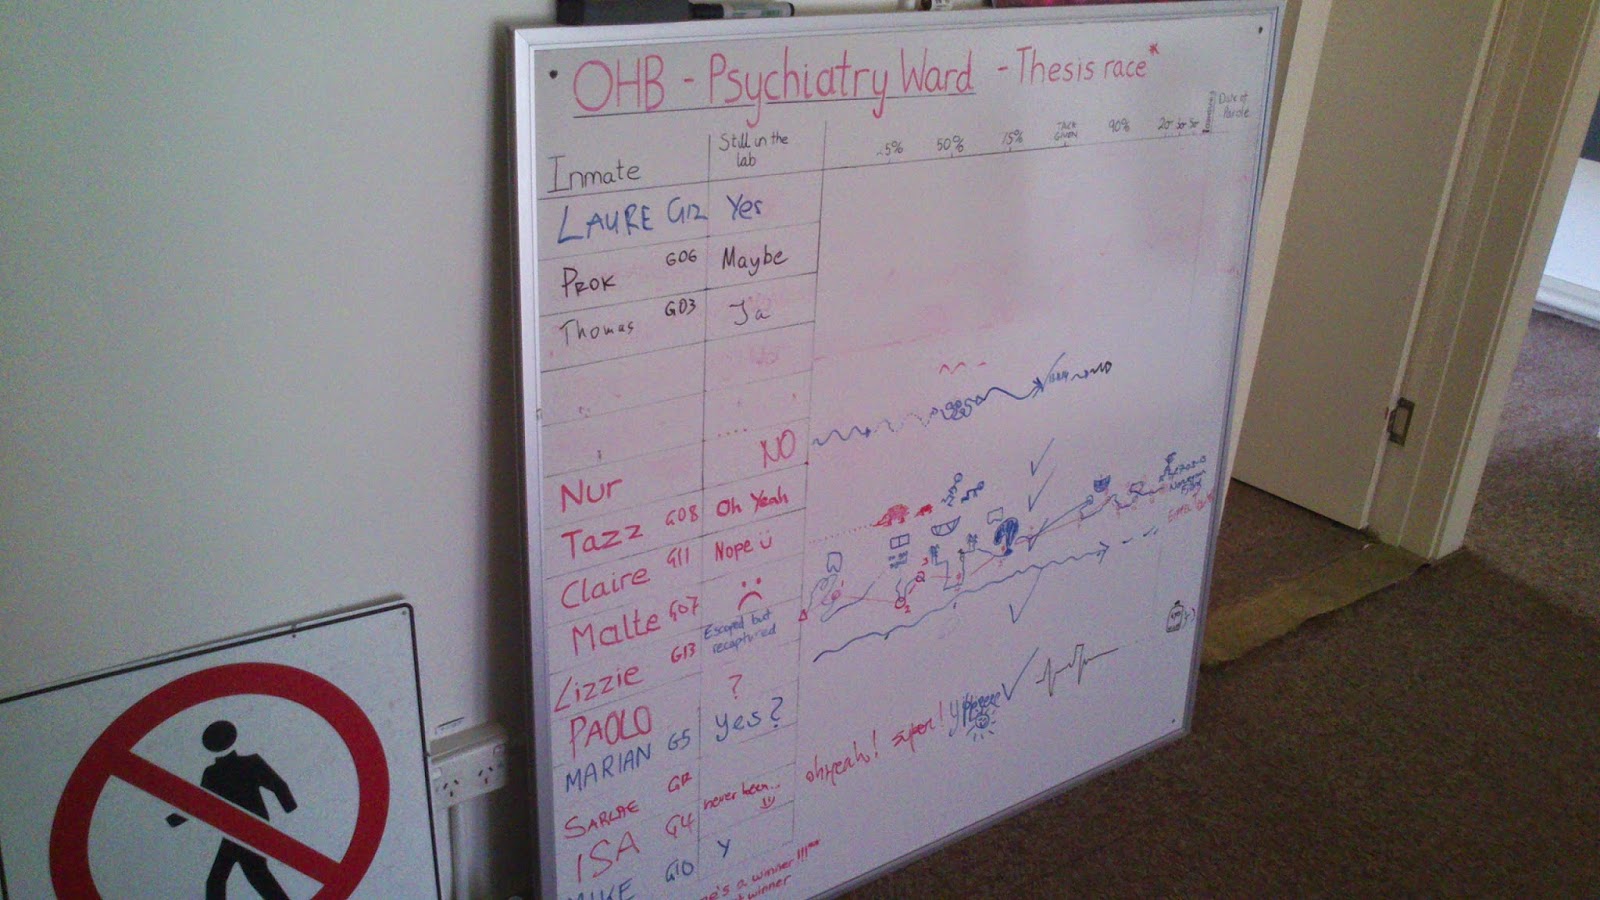 OHB - Psychiatry Ward - Thesis race*
Inmate
Still in the lab
50%
75%
TALK GIVEN
90%
Date of Parole
LAURE G12 Yes
PROK G06 Maybe
Thomas G03 Ja
Nur NO
Tazz G08 Oh Yeah
Claire G11 Nope ü
Malte G07
Escaped but recaptured
Lizzie G13
PAOLO ?
MARIAN G5 yes?
oh yeah! super!
G4 never been...
ISA
MIKE G10 Y
's a winner !!!
winner